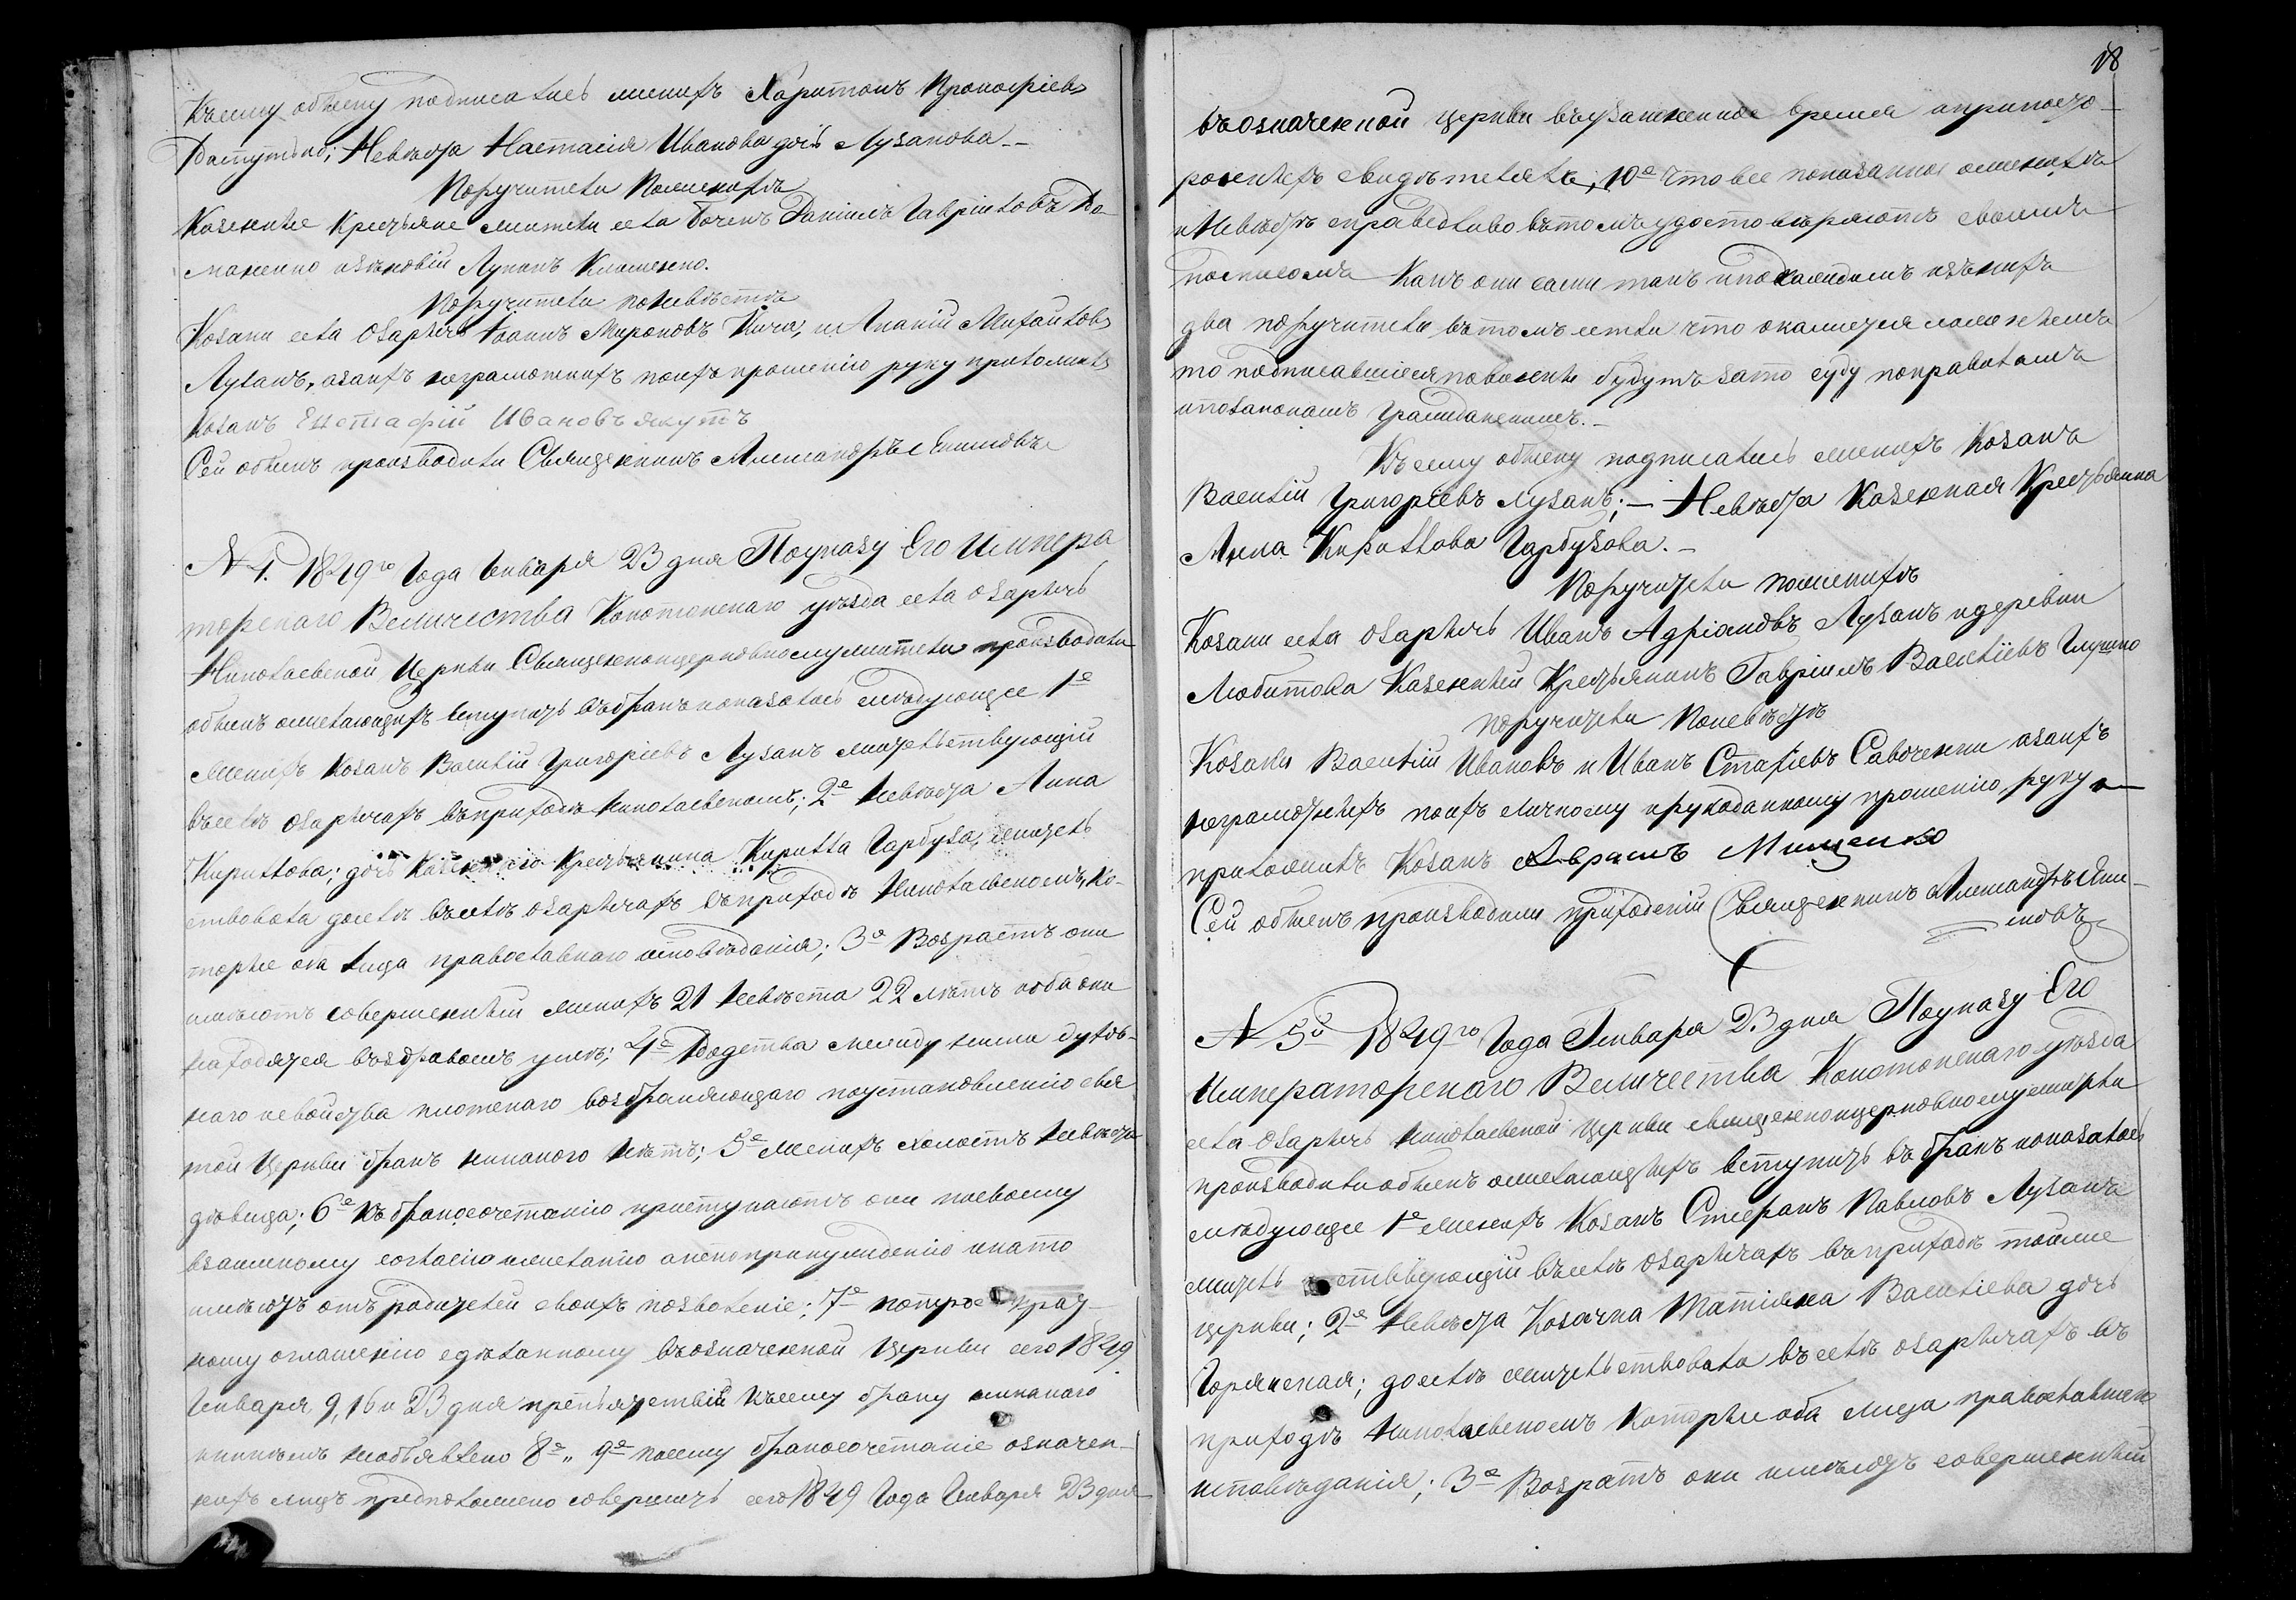 Къ сему обыску подписались женихъ Харитонъ Прокофіевъ
Невѣста Настасія Иванова дочь Лузанова.
Поручители По женихѣ
Казенные Крестьяне жители села Даніилъ Гавріиловъ До-
маненко и Лукьянъ Клименко.
Поручители по невѣстѣ
Козаки села Озаричъ Іоаннъ Мироновъ и Ананій Михайловъ
Лузанъ, а за ихъ неграмотныхъ по ихъ прошенію руку приложилъ
Козакъ Евстафій Ивановъ
Сей обыскъ производили Священникъ Александръ Екимовъ

№ 4. 1849го Года Января 23 дня По указу Его Импера
торскаго Величества Конотопскаго уѣзда села Озаричъ
Николаевской Церкви Священноцерковнослужители производили
обыскъ о желающихъ вступить въ бракъ и оказалось слѣдующее 1е
Женихъ Козакъ Василій Григоріевъ Лузанъ жительствующій
въ селѣ Озаричахъ въ приходѣ Николаевскомъ; 2е Невѣста Анна
Кириллова; дочь Казеннаго Крестьянина Кирилла Гарбуза, житель
ствовала доселѣ въ селѣ Озаричахъ въ приходѣ Николаевскомъ, ко-
торые оба лица православнаго исповѣданія; 3е Возрастъ они
имѣютъ совершенный женихъ 21 невѣста 22 лѣтъ и оба они
находятся въ здравомъ умѣ; 4е Родства между ними духов-
наго и свойства плотскаго возбраняющаго по установленію свя
той Церкви бракъ никакого нѣтъ; 5е Женихъ холостъ невѣста
дѣвица; 6е Къ бракосочетанію приступаютъ они по своему
взаимному согласію и желанію а не по принужденію и на то
имѣютъ отъ родителей своихъ позволеніе; 7е По троекрат
ному оглашенію сдѣланному въ означенной Церкви сего 1849
Января 9, 16 и 23 дня препятствій къ сему браку никакого
никѣмъ не объявлено 8е „ 9е По сему бракосочетаніе означен-
ныхъ лицъ предположено совершить сего 1849 Года Января 23 дня

18
въ означенной церкви въ узаконенное время и при посто-
роннихъ свидѣтеляхъ; 10е Что все показанное о женихѣ
и Невѣстѣ справедливо въ томъ удостовѣряютъ своимъ
подписомъ какъ они сами такъ и по каждомъ изъ нихъ
два поручителя въ томъ если что окажется ложнымъ
то подписавшіеся повинны будутъ за то суду по правиламъ
и по законамъ гражданскимъ.
Къ сему обыску подписались женихъ Козакъ
Василій Григоріевъ Лузанъ; — Невѣста Казенная Крестьянка
Анна Кириллова Гарбузова.
Поручители по женихѣ
Козаки села Озаричъ Иванъ Адріановъ Лузанъ и деревни
Любитова Казенный Крестьянинъ Гавріилъ Василіевъ Глушко
поручители По невѣстѣ
Козаки Василій Ивановъ и Иванъ Стасіевъ Савоченки а за ихъ
неграмотныхъ по ихъ личному и рукоданному прошенію руку
приложилъ Козакъ Аврамъ Мищенко
Сей обыскъ производили приходскій Священникъ Александръ Еки-
мовъ

№ 5й 1849го Года Генваря 23 дня По указу Его
Императорскаго Величества Конотопскаго уѣзда
села Озаричъ Николаевской церкви священноцерковнослужители
производили обыскъ о желающихъ вступить въ бракъ и оказалось
слѣдующее 1е женихъ Козакъ Стефанъ Павловъ Лузанъ
житель ствующій въ селѣ Озаричахъ въ приходѣ той же
церкви; 2е Невѣста Козачка Татіана Василіева дочь
Горянская; доселѣ жительствовала въ селѣ Озаричахъ въ
приходѣ Николаевскомъ Которые оба лица православнаго
исповѣданія; 3е Возрастъ они имѣютъ совершенный